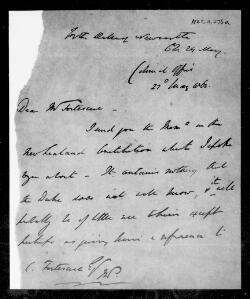 Colonial Office
27 May 1862
Dear Mr Fortescue -
I send you the Mem° on the
New Zealand Constitution which I spoke
to you about - It contains nothing that
the Duke does not know, & it will
probably be of little use to him except
perhaps as giving him a reference to
C. Fortescue Esq MP